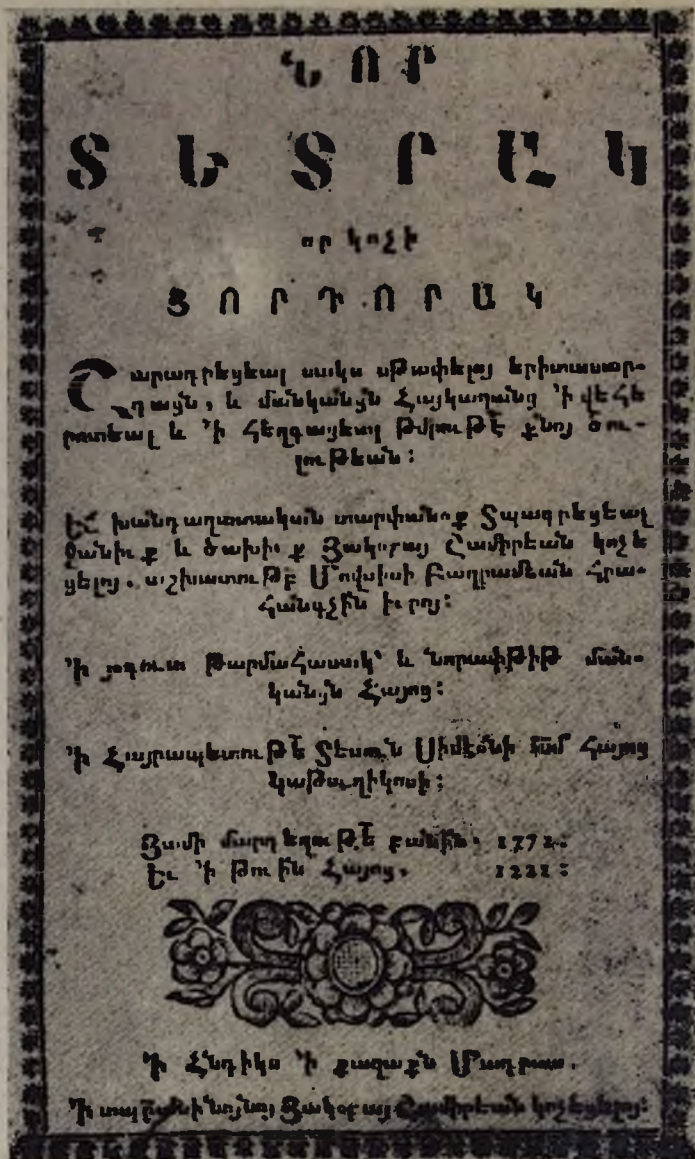 ՆՈՐ
ՏԵՏՐԱԿ
որ կոչի
ՅՈՐԴՈՐԱԿ
Շարադրեցեալ սակս սթափելոյ երիտասար-
դացն, և մանկանցն Հայկազանց ՚ի վեհե
րոտեալ և ՚ի հեղգացեալ թմրութէ քնոյ ծու-
լութեան։
Եւ խանդաղատական տարփանօք Տպագրեցեալ
ջանիւք և ծախիւք Յակօբայ Շամիրեան կոչե
ցելոյ. աշխատութբ Մովսիսի Բաղրամեան հրա-
հանգչին իւրոյ։
՚ի յօգուտ թարմահասակ՝ և նորափթիթ ման-
կանցն Հայոց։
՚ի Հայրապետութէ Տեառն Սիմէօնի ամ հայոց
կաթուղիկոսի։
Յամի մարդեղութէ բանին. 1772։
Եւ ՚ի թուին Հայոց, 1221։
՚ի Հնդիկս ՚ի քաղաքն Մադրաս.
՚ի տպարանի նոյնոյ Յակօբայ Շամիրեան կոչեցելոյ։